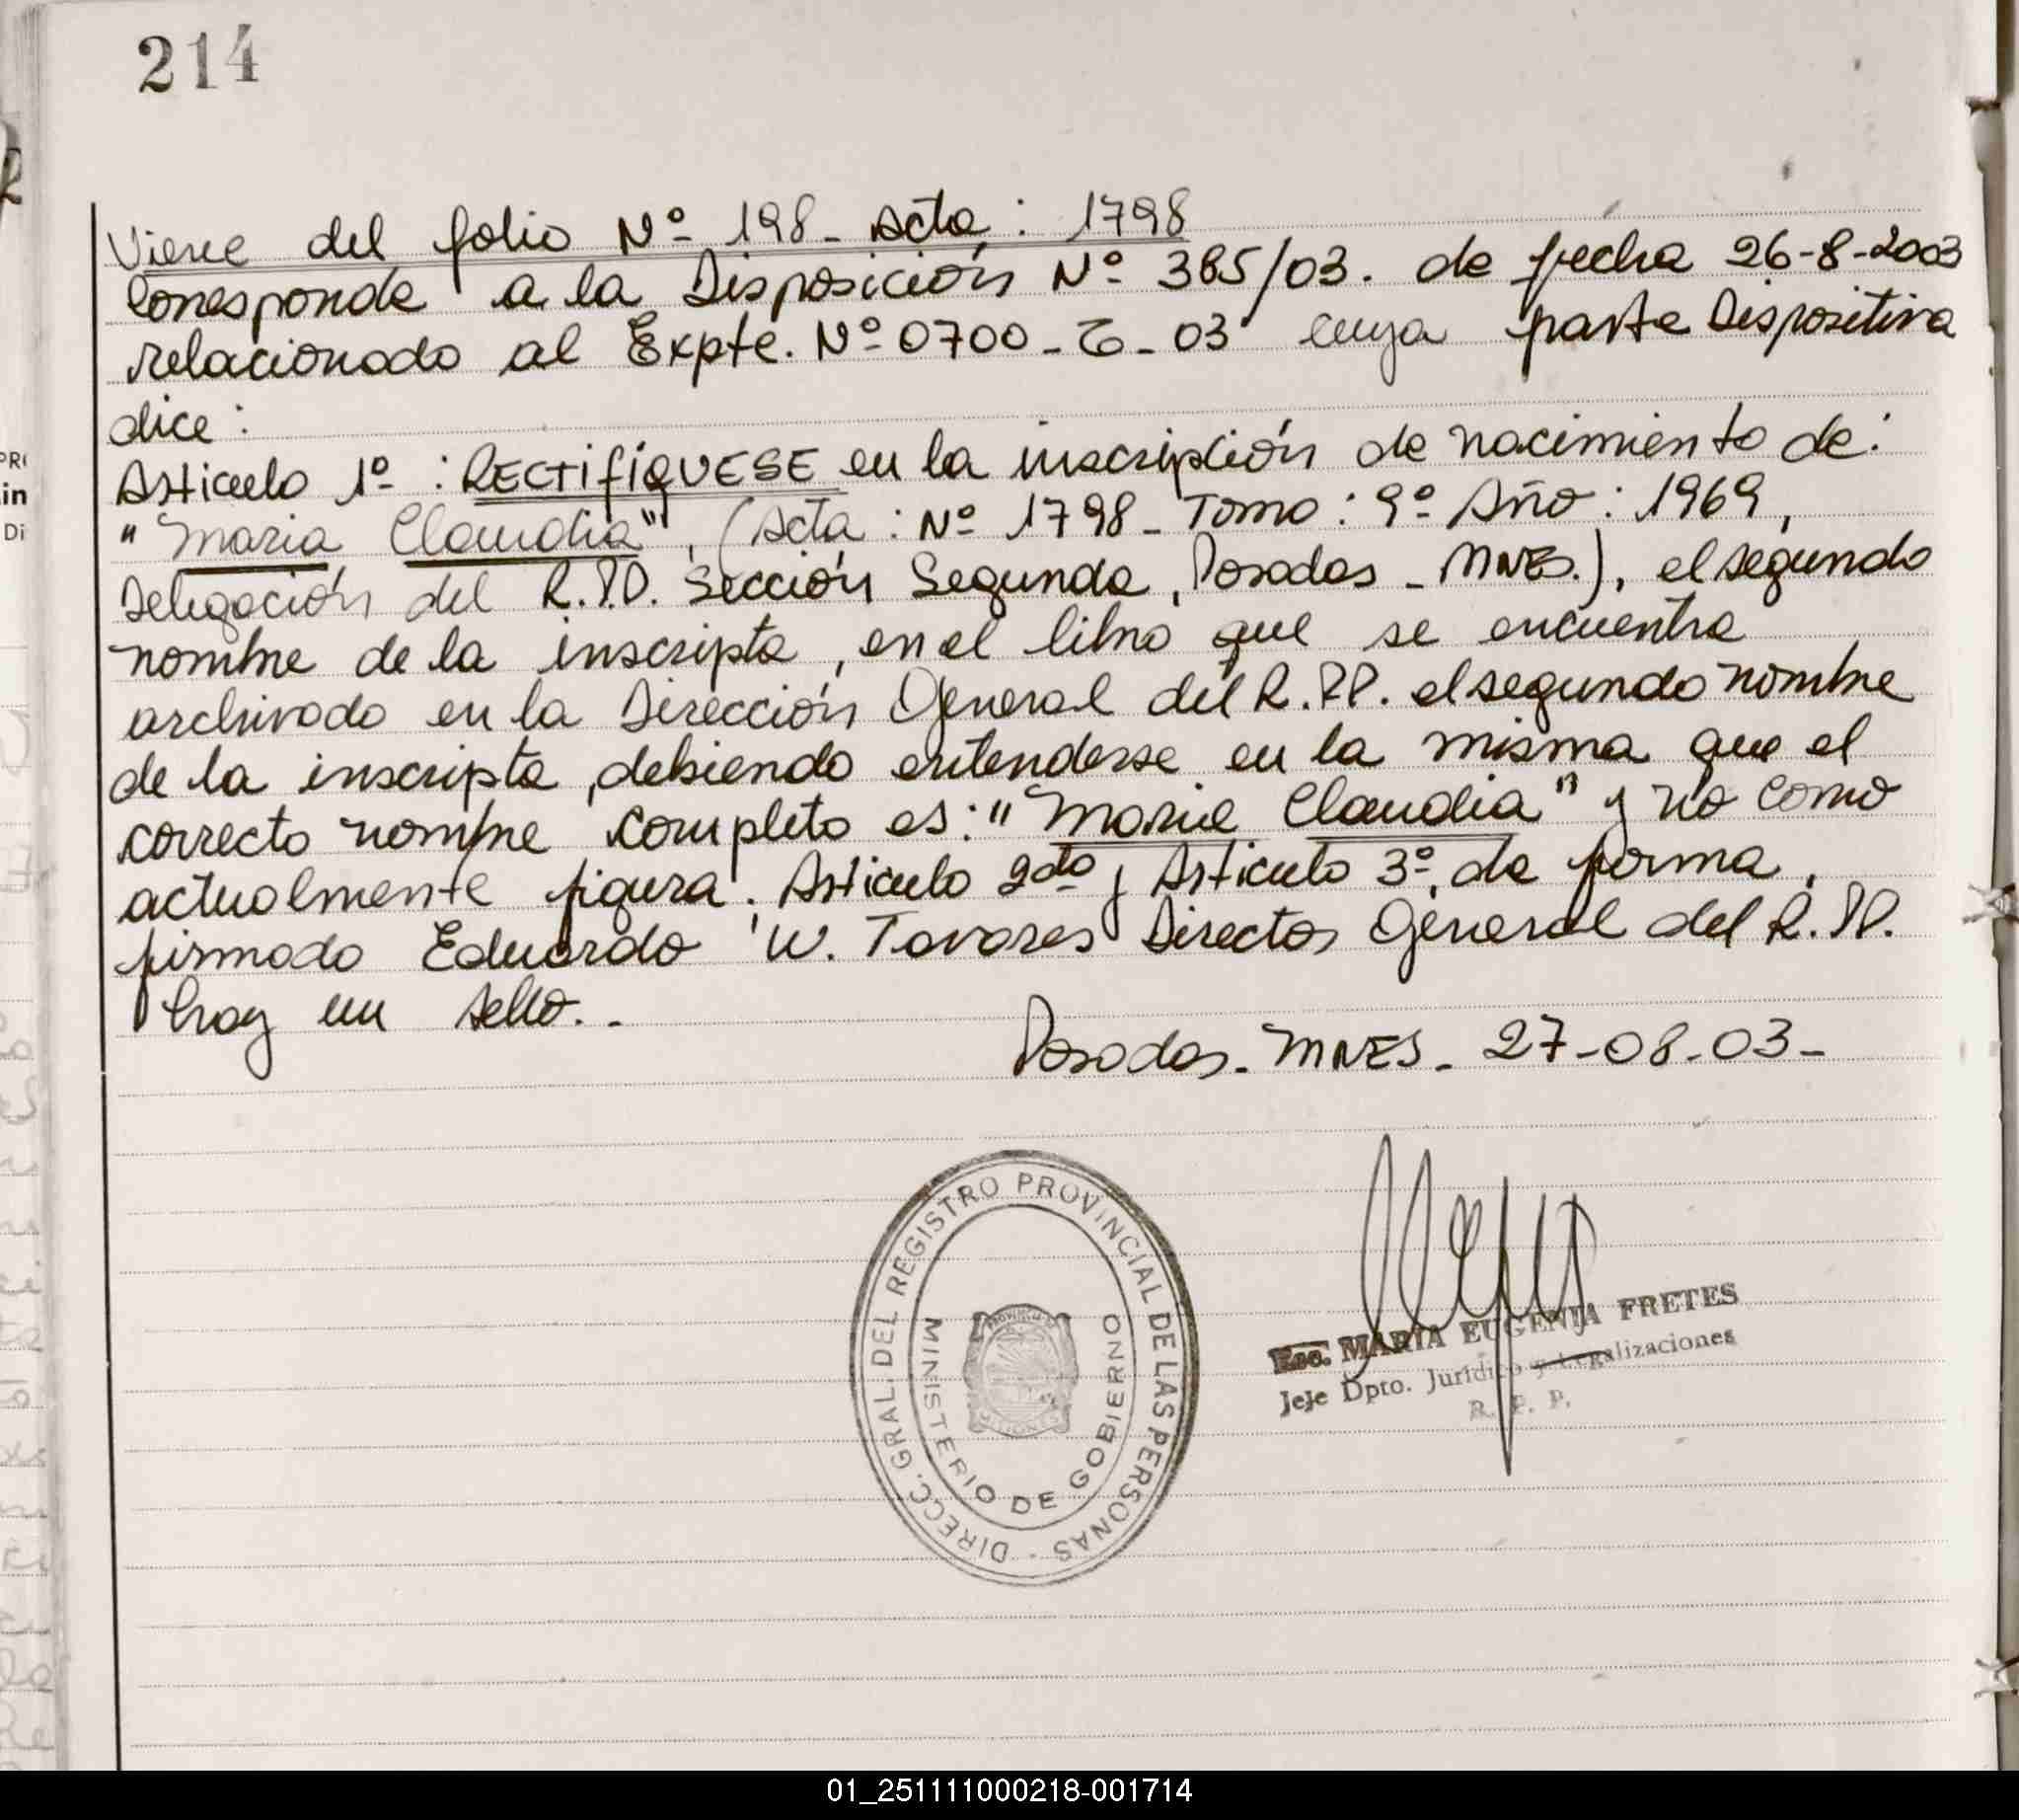 214
Viene del folio Nº 198- Acta : 1798
Corresponde a la Disposición Nº 385/03. de fecha 26-8-2003
relacionado al Expte. Nº 0700-T-03 cuya parte Dispositiva
dice:
Articulo 1º : RECTIFIQUESE en la inscripción de nacimiento de:
"Maria Claudia", (Acta : Nº 1798- Tomo : 9º Año : 1969,
Delegación del R.P.P. Sección Segunda, Posadas - MNES.), el segundo
nombre de la inscripta, en el libro que se encuentra
archivado en la Dirección General del R.P.P. el segundo nombre
de la inscripta, debiendo entenderse en la misma que el
correcto nombre completo es: "Maria Claudia" y no como
actualmente figura. Articulo 2do y Articulo 3º, de forma,
firmado Eduardo W. Tavares Director General del R.P.P.
hay un sello.-
Posadas- MNES- 27-08-03-
DIRECC. GRAL. DEL REGISTRO PROVINCIAL DE LAS PERSONAS -
MINISTERIO DE GOBIERNO
Esc. MARIA EUGENIA FRETES
Jefe Dpto. Jurídico y Legalizaciones
R. P. P.
01_251111000218-001714